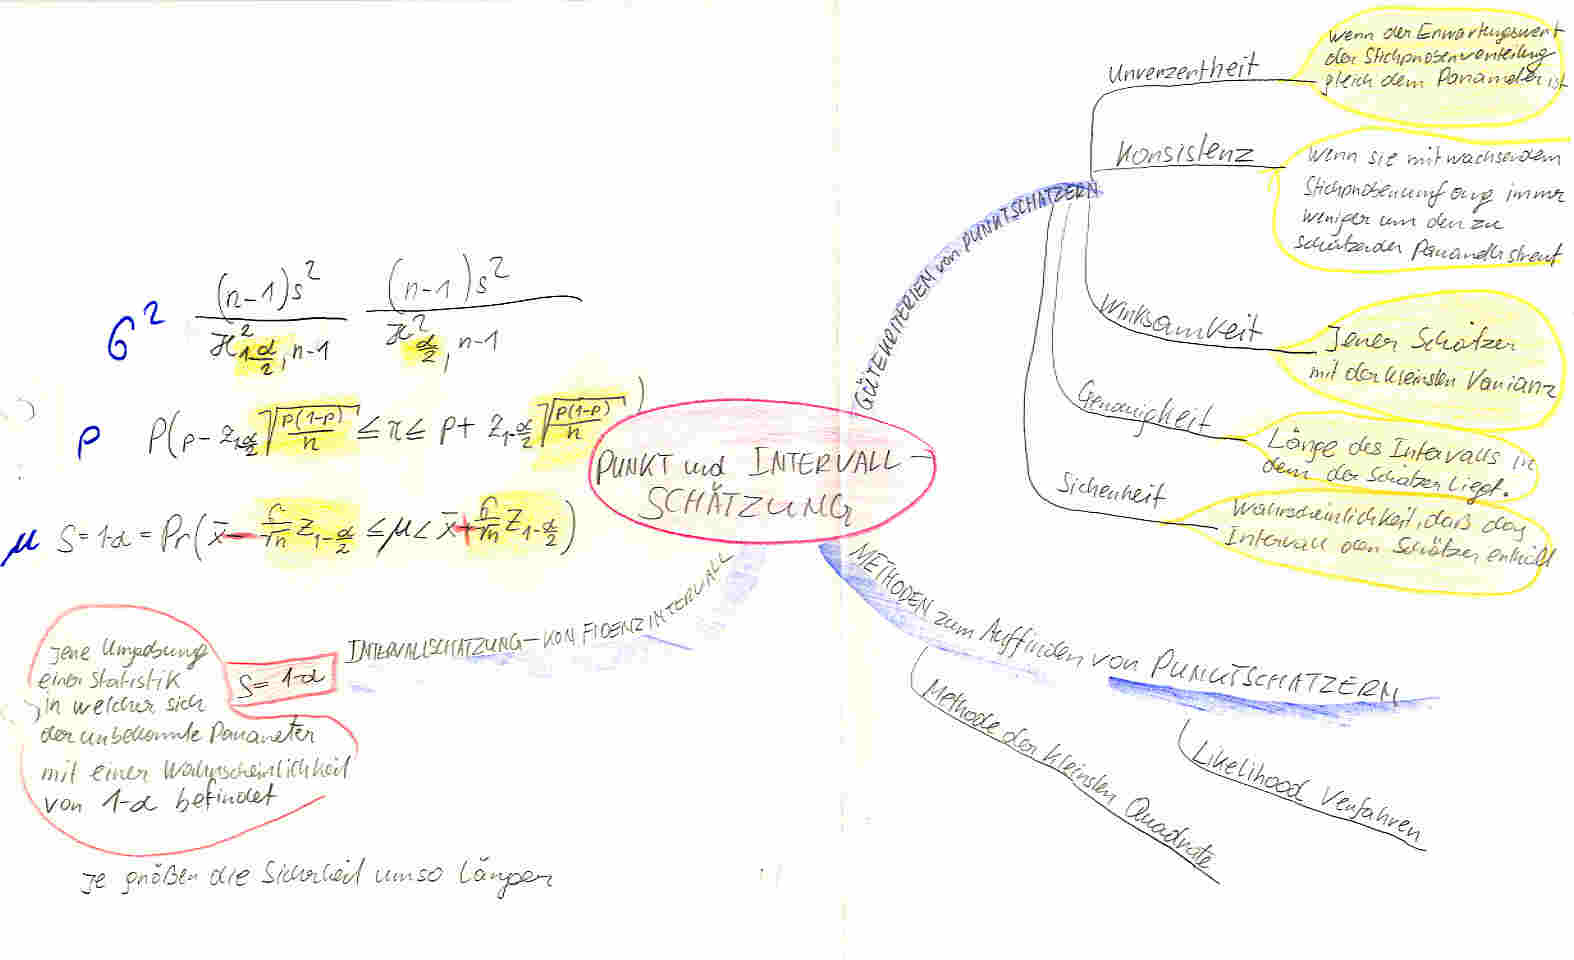 PUNKT und INTERVALL-
SCHÄTZUNG
GÜTEKRITERIEN von PUNKTSCHÄTZERN
Unverzerrtheit
wenn der Erwartungswert
der Stichprobenverteilung
gleich dem Parameter ist
Konsistenz
Wenn sie mit wachsendem
Stichprobenumfang immer
weniger um den zu
schätzenden Parameter streut
Wirksamkeit
Jener Schätzer
mit der kleinsten Varianz
Genauigkeit
Länge des Intervalls in
dem der Schätzer liegt.
Sicherheit
Wahrscheinlichkeit, daß das
Intervall den Schätzer enthält
METHODEN zum Auffinden von PUNKTSCHÄTZERN
Methode der kleinsten Quadrate
Likelihood Verfahren
INTERVALLSCHÄTZUNG – KONFIDENZINTERVALL
S = 1-α
Jene Umgebung
einer Statistik
in welcher sich
der unbekannte Parameter
mit einer Wahrscheinlichkeit
von 1-α befindet
Je größer die Sicherheit umso länger
σ² (n-1)s² / χ²_{1-α/2, n-1} (n-1)s² / χ²_{α/2, n-1}
p P(p - z_{1-α/2} √(p(1-p)/n) ≤ π ≤ p + z_{1-α/2} √(p(1-p)/n))
μ S = 1-α = Pr(x̄ - σ/√n z_{1-α/2} ≤ μ < x̄ + σ/√n z_{1-α/2})